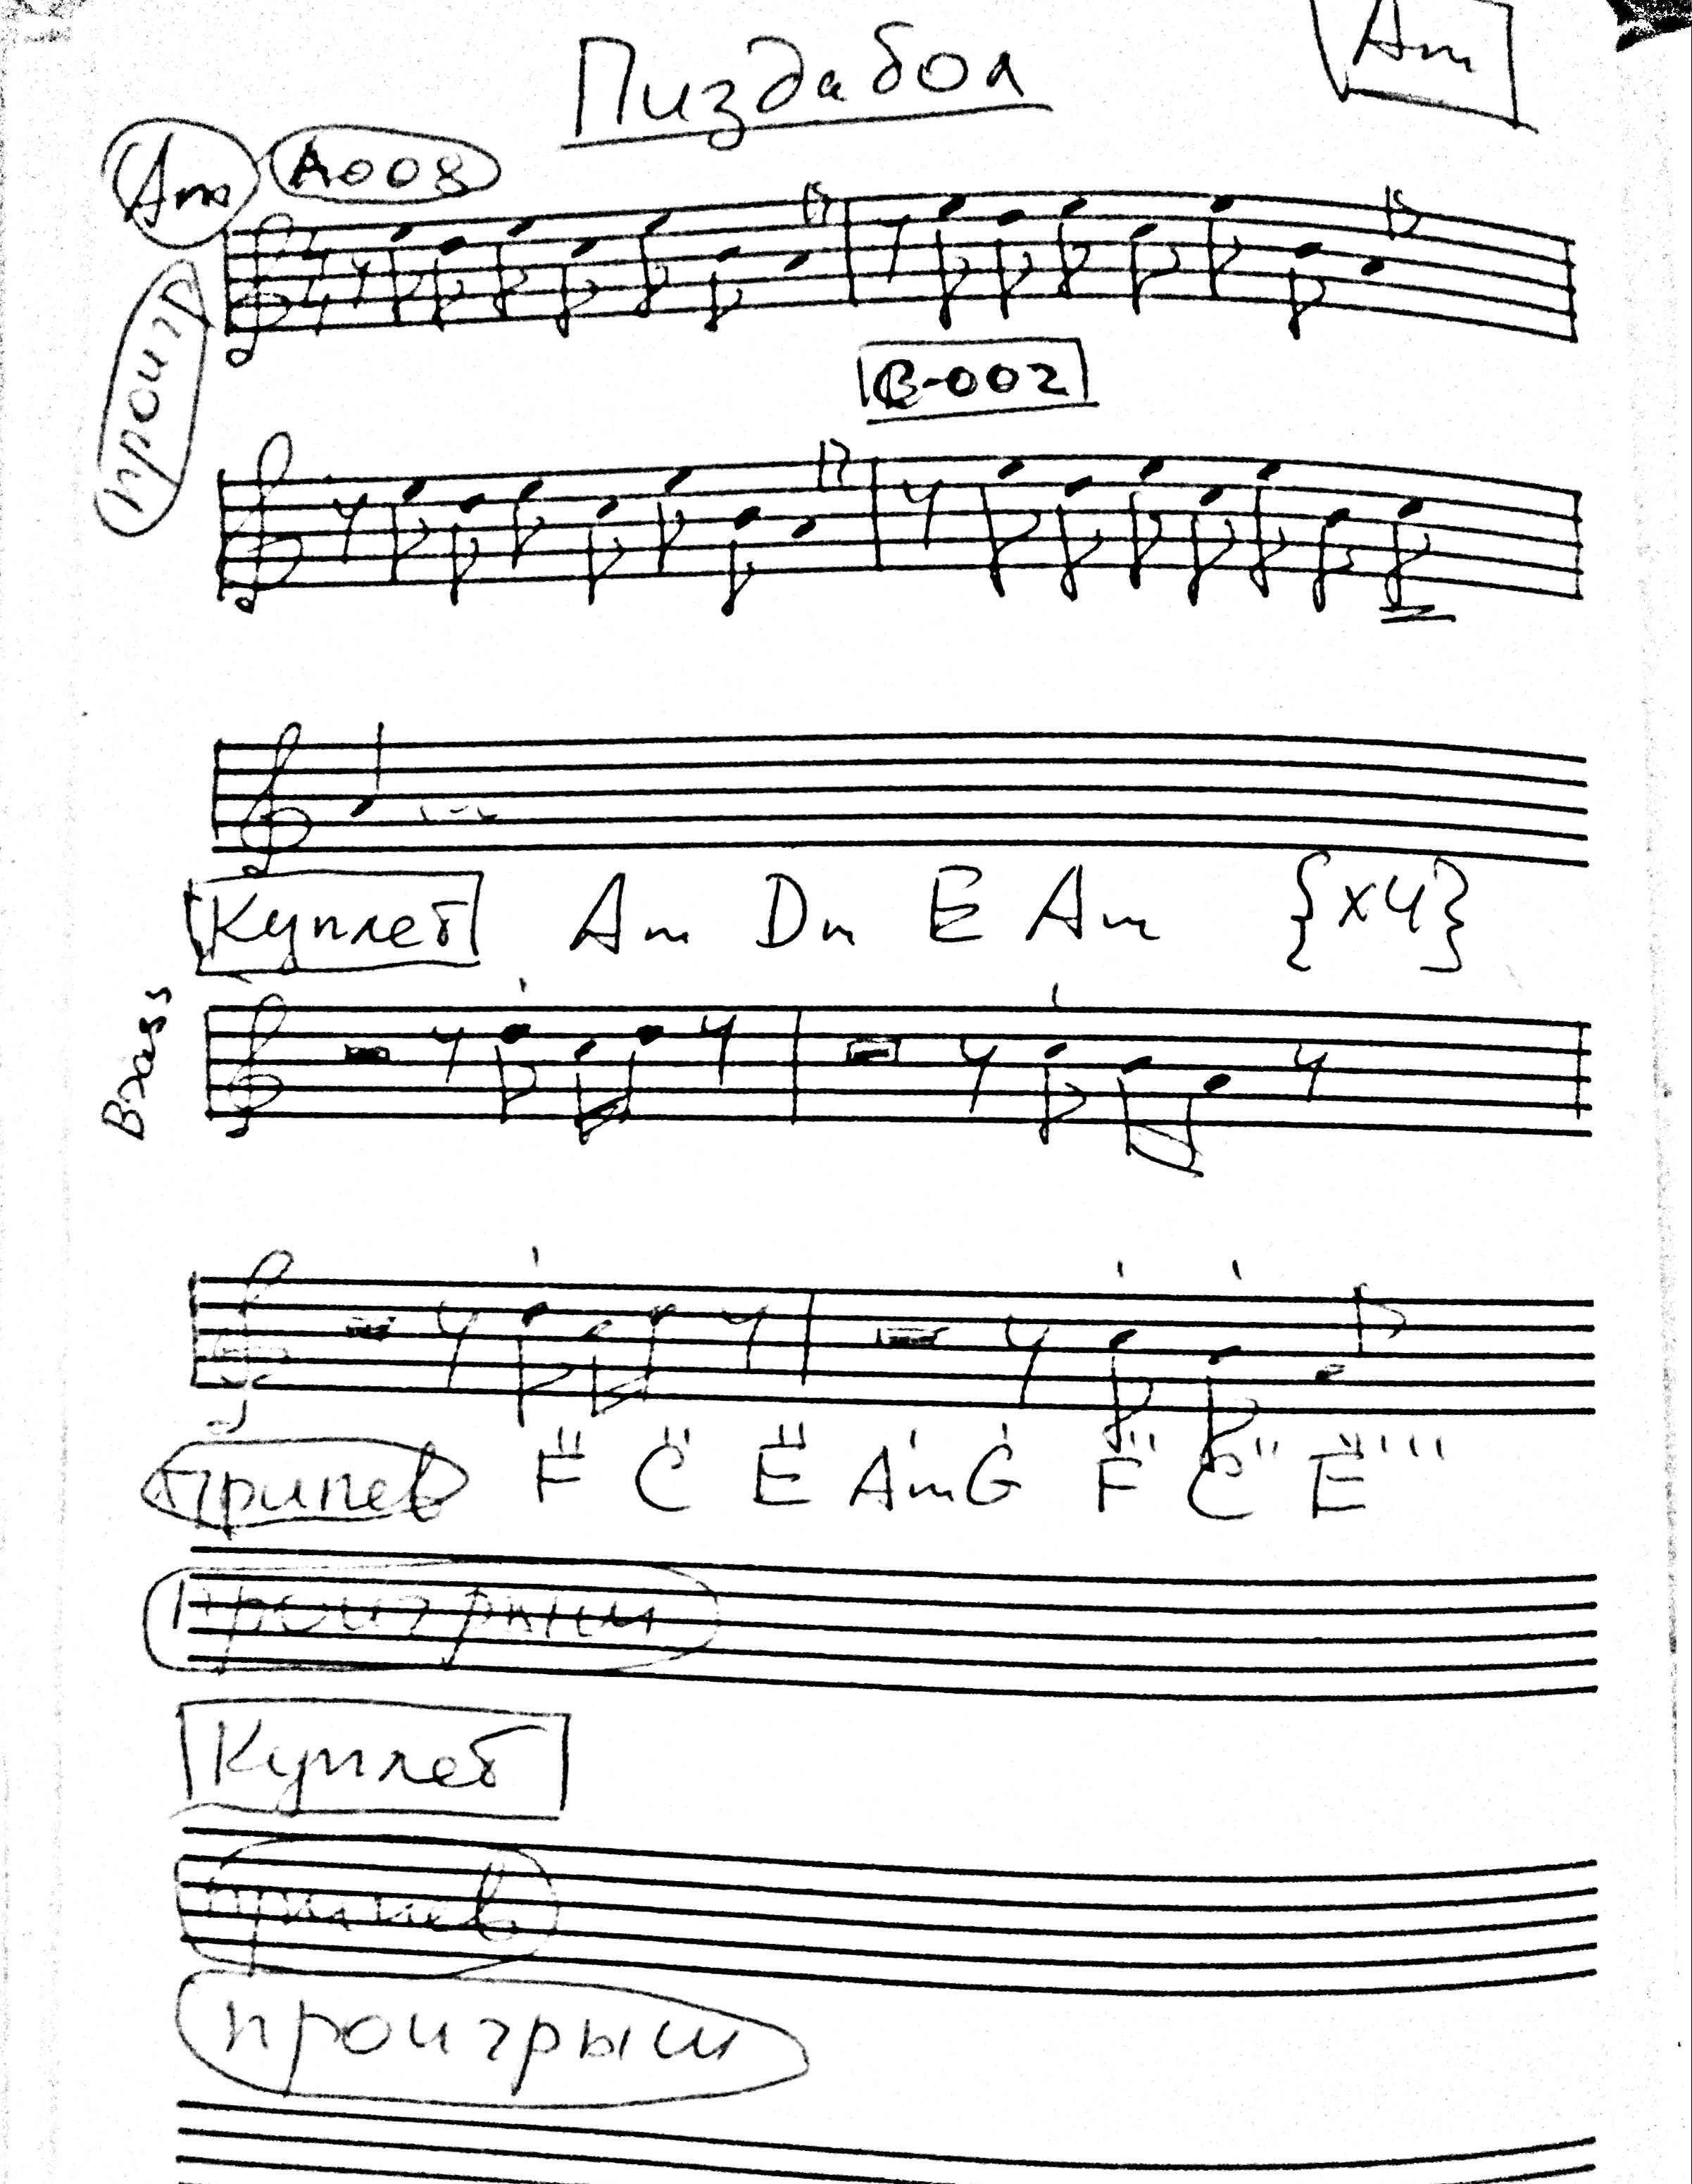 Пиздабол
Am
Am A008
проигр
B-002
Куплет Am Dm E Am {x4}
Brass
припев F C E Am G F C E
проигрыш
Куплет
припев
проигрыш